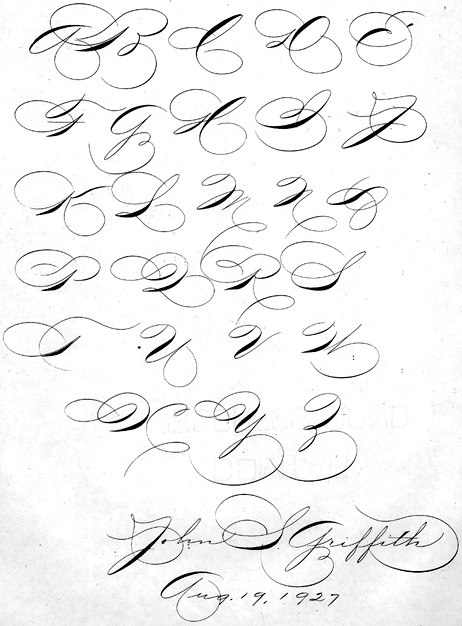 A B C D E
F G H I J
K L M N O
P Q R S
T U V W
X Y Z
John S. Griffith
Aug. 19, 1927